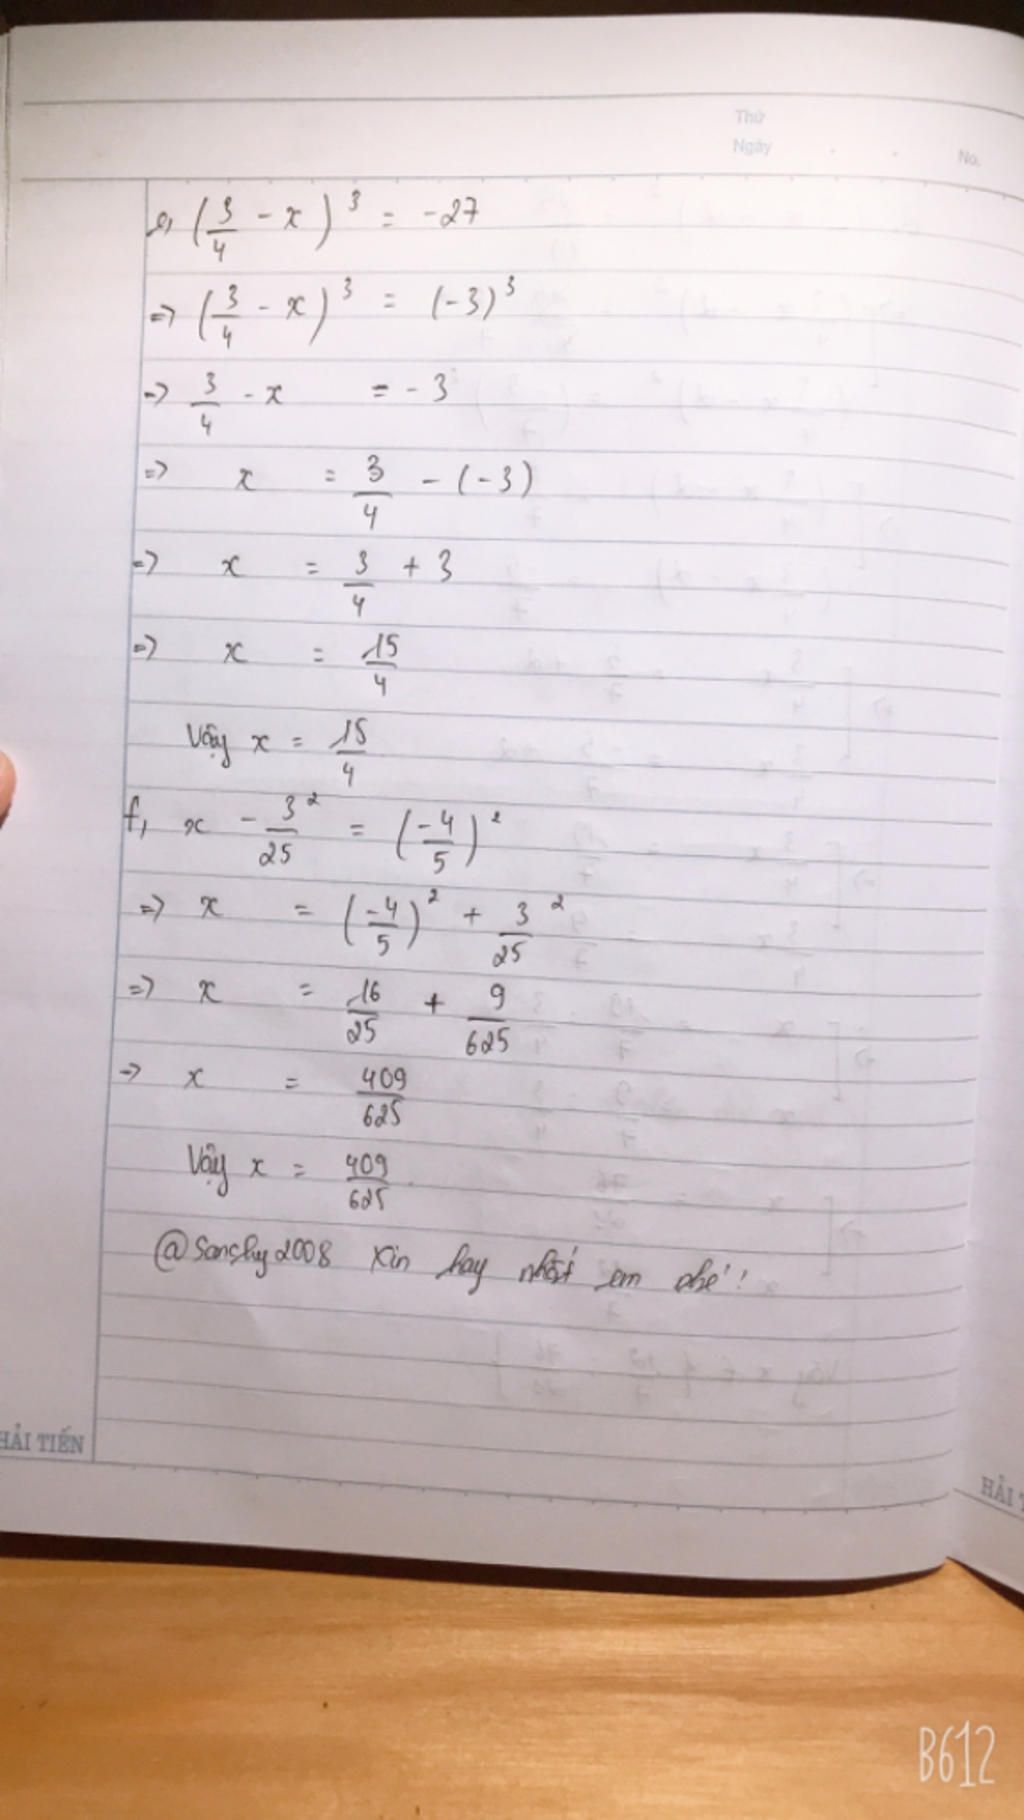 Thứ
Ngày No.
e, (3/4 - x)³ = -27
=> (3/4 - x)³ = (-3)³
=> 3/4 - x = -3
=> x = 3/4 - (-3)
=> x = 3/4 + 3
=> x = 15/4
Vậy x = 15/4
f, x - 3²/25 = (-4/5)²
=> x = (-4/5)² + 3²/25
=> x = 16/25 + 9/625
=> x = 409/625
Vậy x = 409/625.
@Sanchy2008 Xin hay nhất em nhé!
HẢI TIẾN
HẢI T
B612